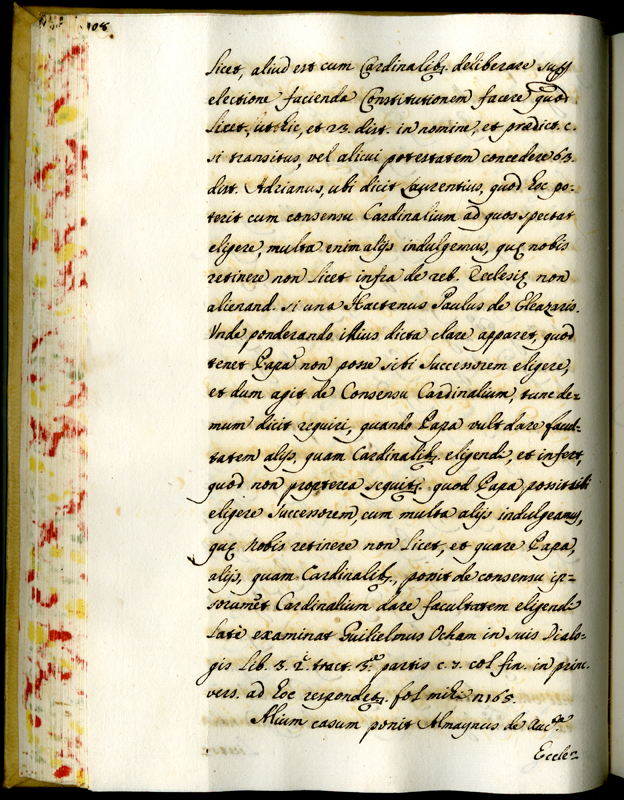 108.
licet, aliud est cum Cardinalib9. deliberare sup
electione facienda Constitutionem facere quod
licet, ut hic, et 23. dist. in nomine, et prædict. c.
si transitus, vel alicui potestatem concedere 63.
dist. Adrianus, ubi dicit Laurentius, quod hoc po-
terit cum consensu Cardinalium ad quos spectat
eligere, multa enim alijs indulgemus, quę nobis
retinere non licet infra de reb. Ecclesię non
alienand. si una Hactenus Paulus de Eleazaris.
Vnde ponderando illius dicta clare apparet, quod
tenet Papa non posse sibi Successorem eligere,
et dum agit de Consensu Cardinalium, tunc de-
mum dicit requiri, quando Papa vult dare facul-
tatem alijs, quam Cardinalib9. eligendi, et infert,
quod non propterea sequit. quod Papa possit sibi
eligere Successorem, cum multa alijs indulgeamus,
quę nobis retinere non licet, et quare Papa,
alijs, quam Cardinalib9., possit de consensu ip-
sorummet Cardinalium dare facultatem eligendi
latè examinat Guilielmus Ocham in suis Dialo-
gis lib. 3. 2. tract. 3. partis c. 7. col fin. in princ.
vers. ad hoc respondet. fol mihi 165.
Alium casum ponit Almaynus de Auc.
Eccle-